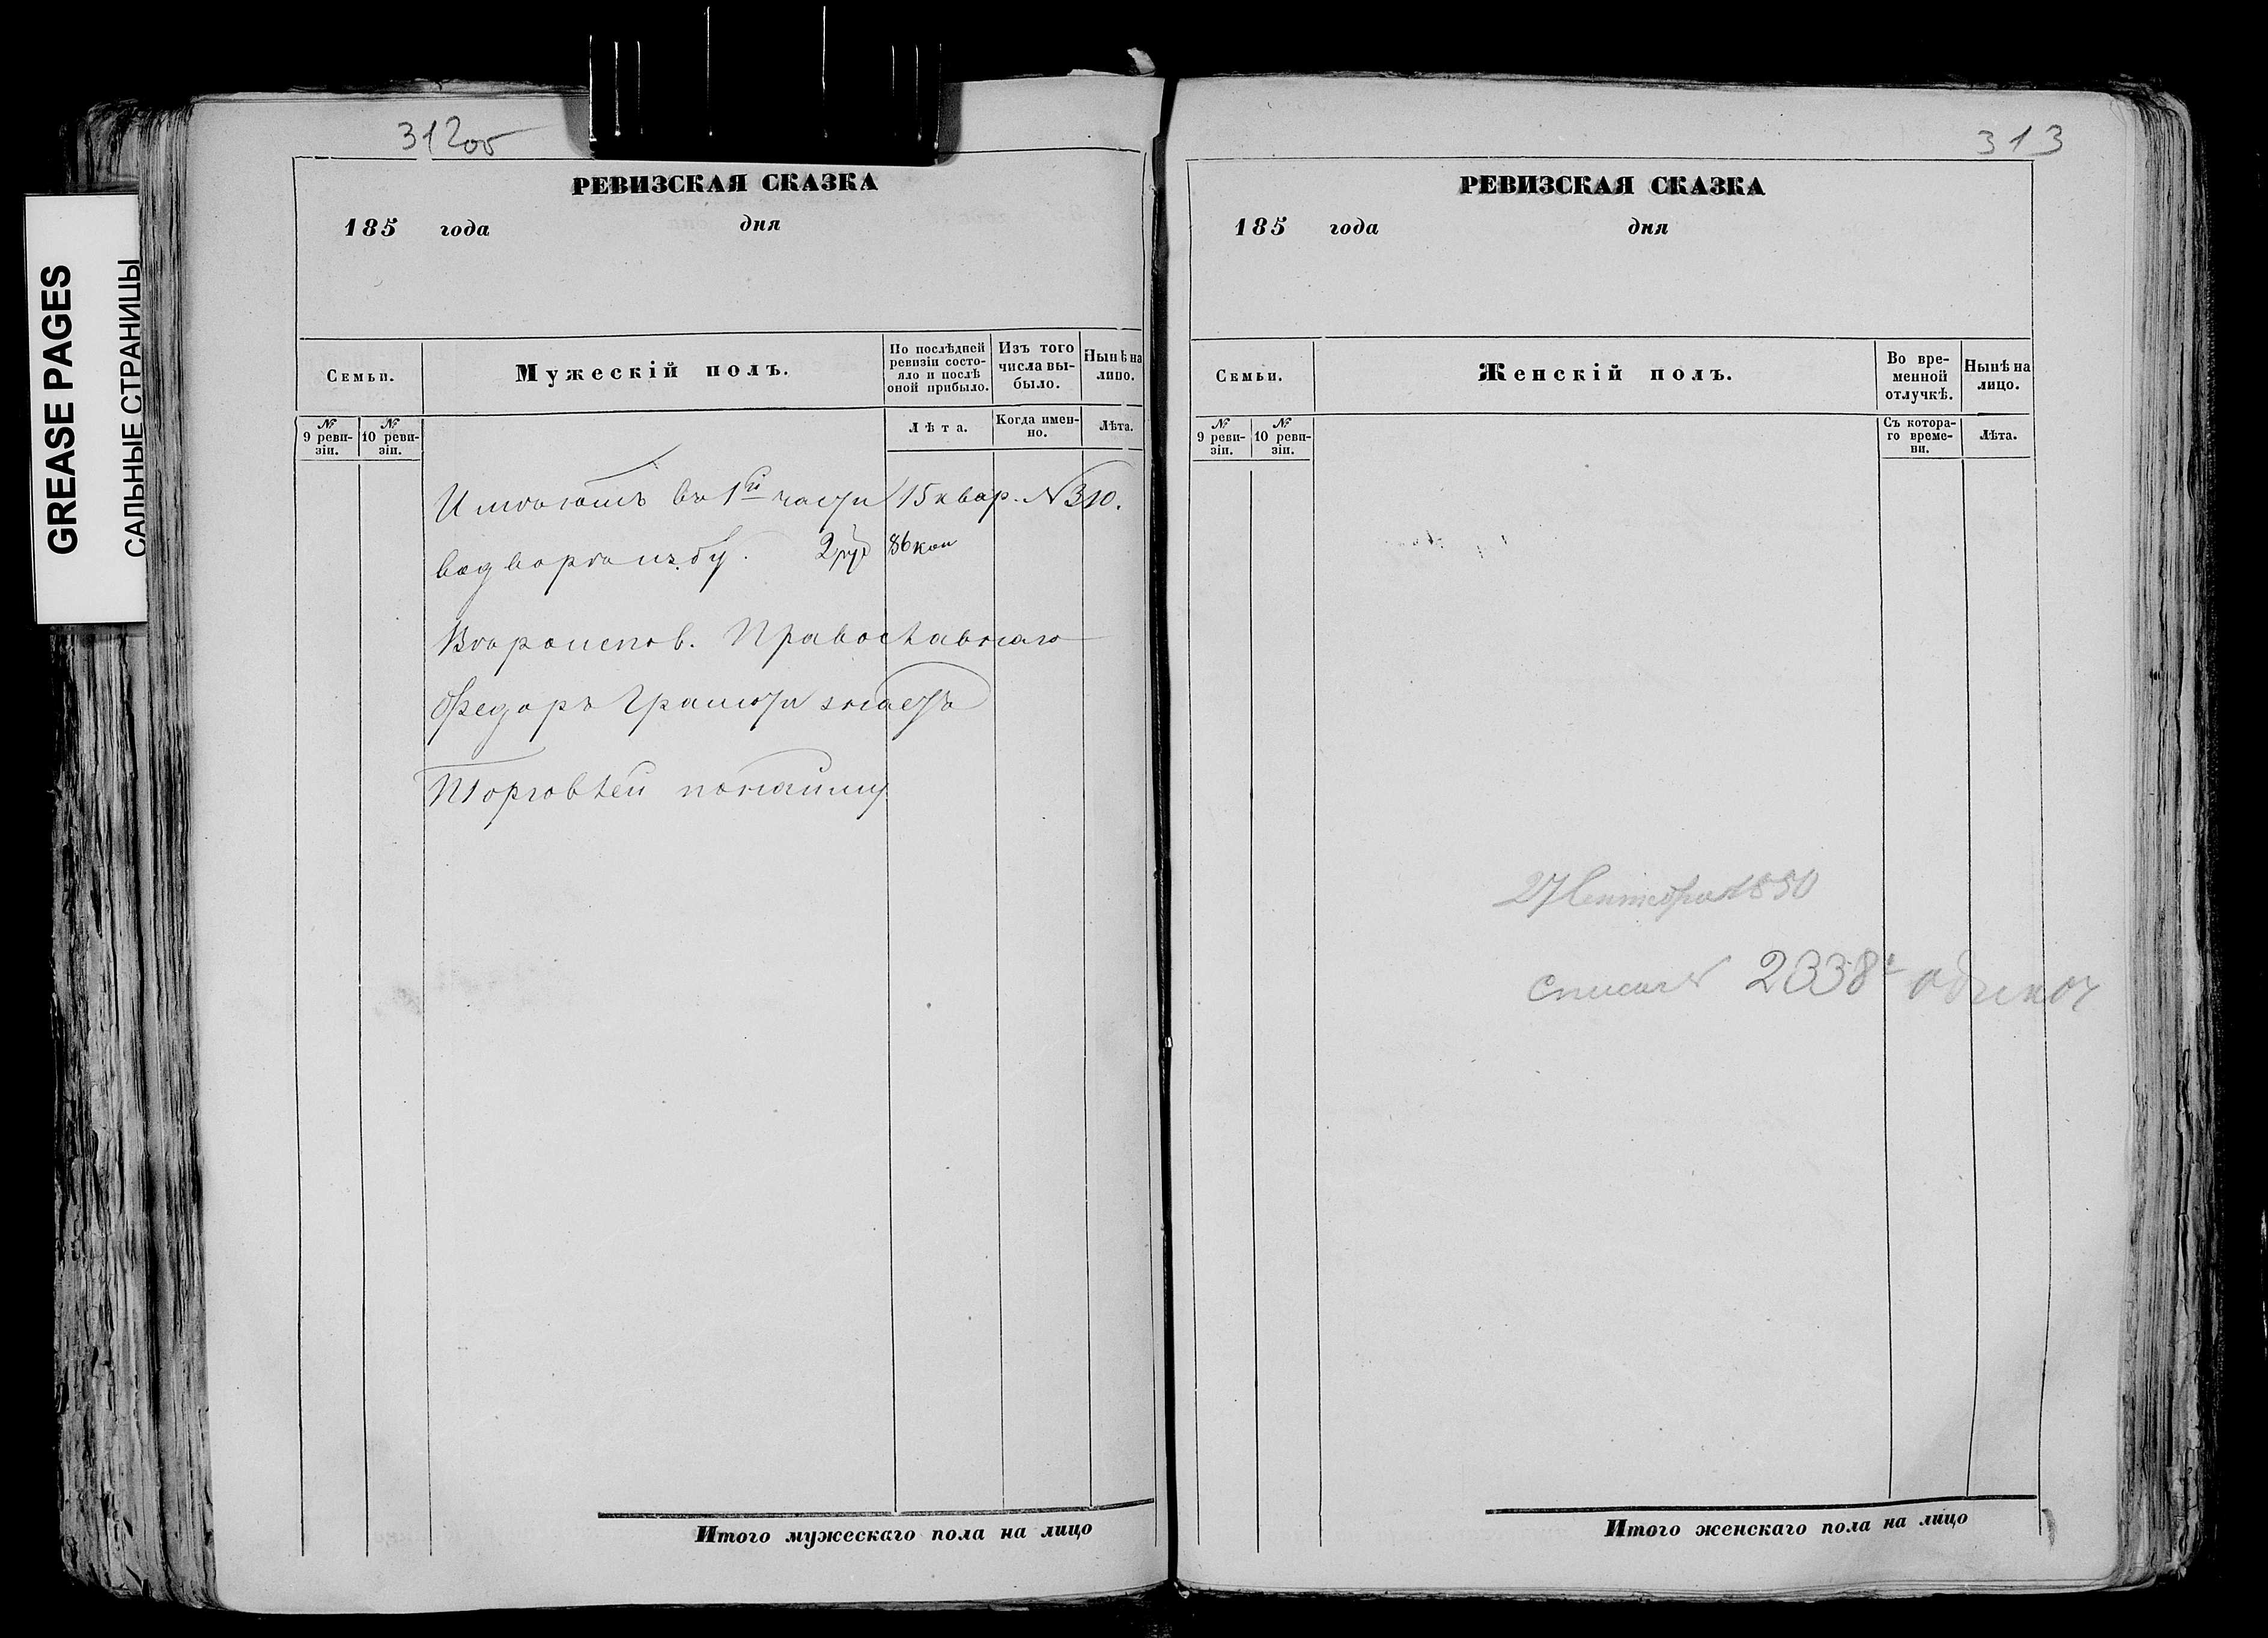 GREASE PAGES
САЛЬНЫЕ СТРАНИЦЫ
312об
РЕВИЗСКАЯ СКАЗКА
185 года дня
Семьи.
Мужескій полъ.
По послѣдней ревизіи состояло и послѣ оной прибыло.
Изъ того числа выбыло.
Нынѣ на лицо.
№ 9 ревизіи.
№ 10 ревизіи.
Лѣта.
Когда именно.
Лѣта.
Имѣютъ въ 1й части 15 квар. №310.
избу. 2 руб 86 коп
Вѣроиспов. Православнаго
Федоръ Грамоти знаетъ
Торговлей понайму
Итого мужескаго пола на лицо
313
РЕВИЗСКАЯ СКАЗКА
185 года дня
Семьи.
Женскій полъ.
Во временной отлучкѣ.
Нынѣ на лицо.
№ 9 ревизіи.
№ 10 ревизіи.
Съ котораго времени.
Лѣта.
27 Сентября 1850
2338
Итого женскаго пола на лицо